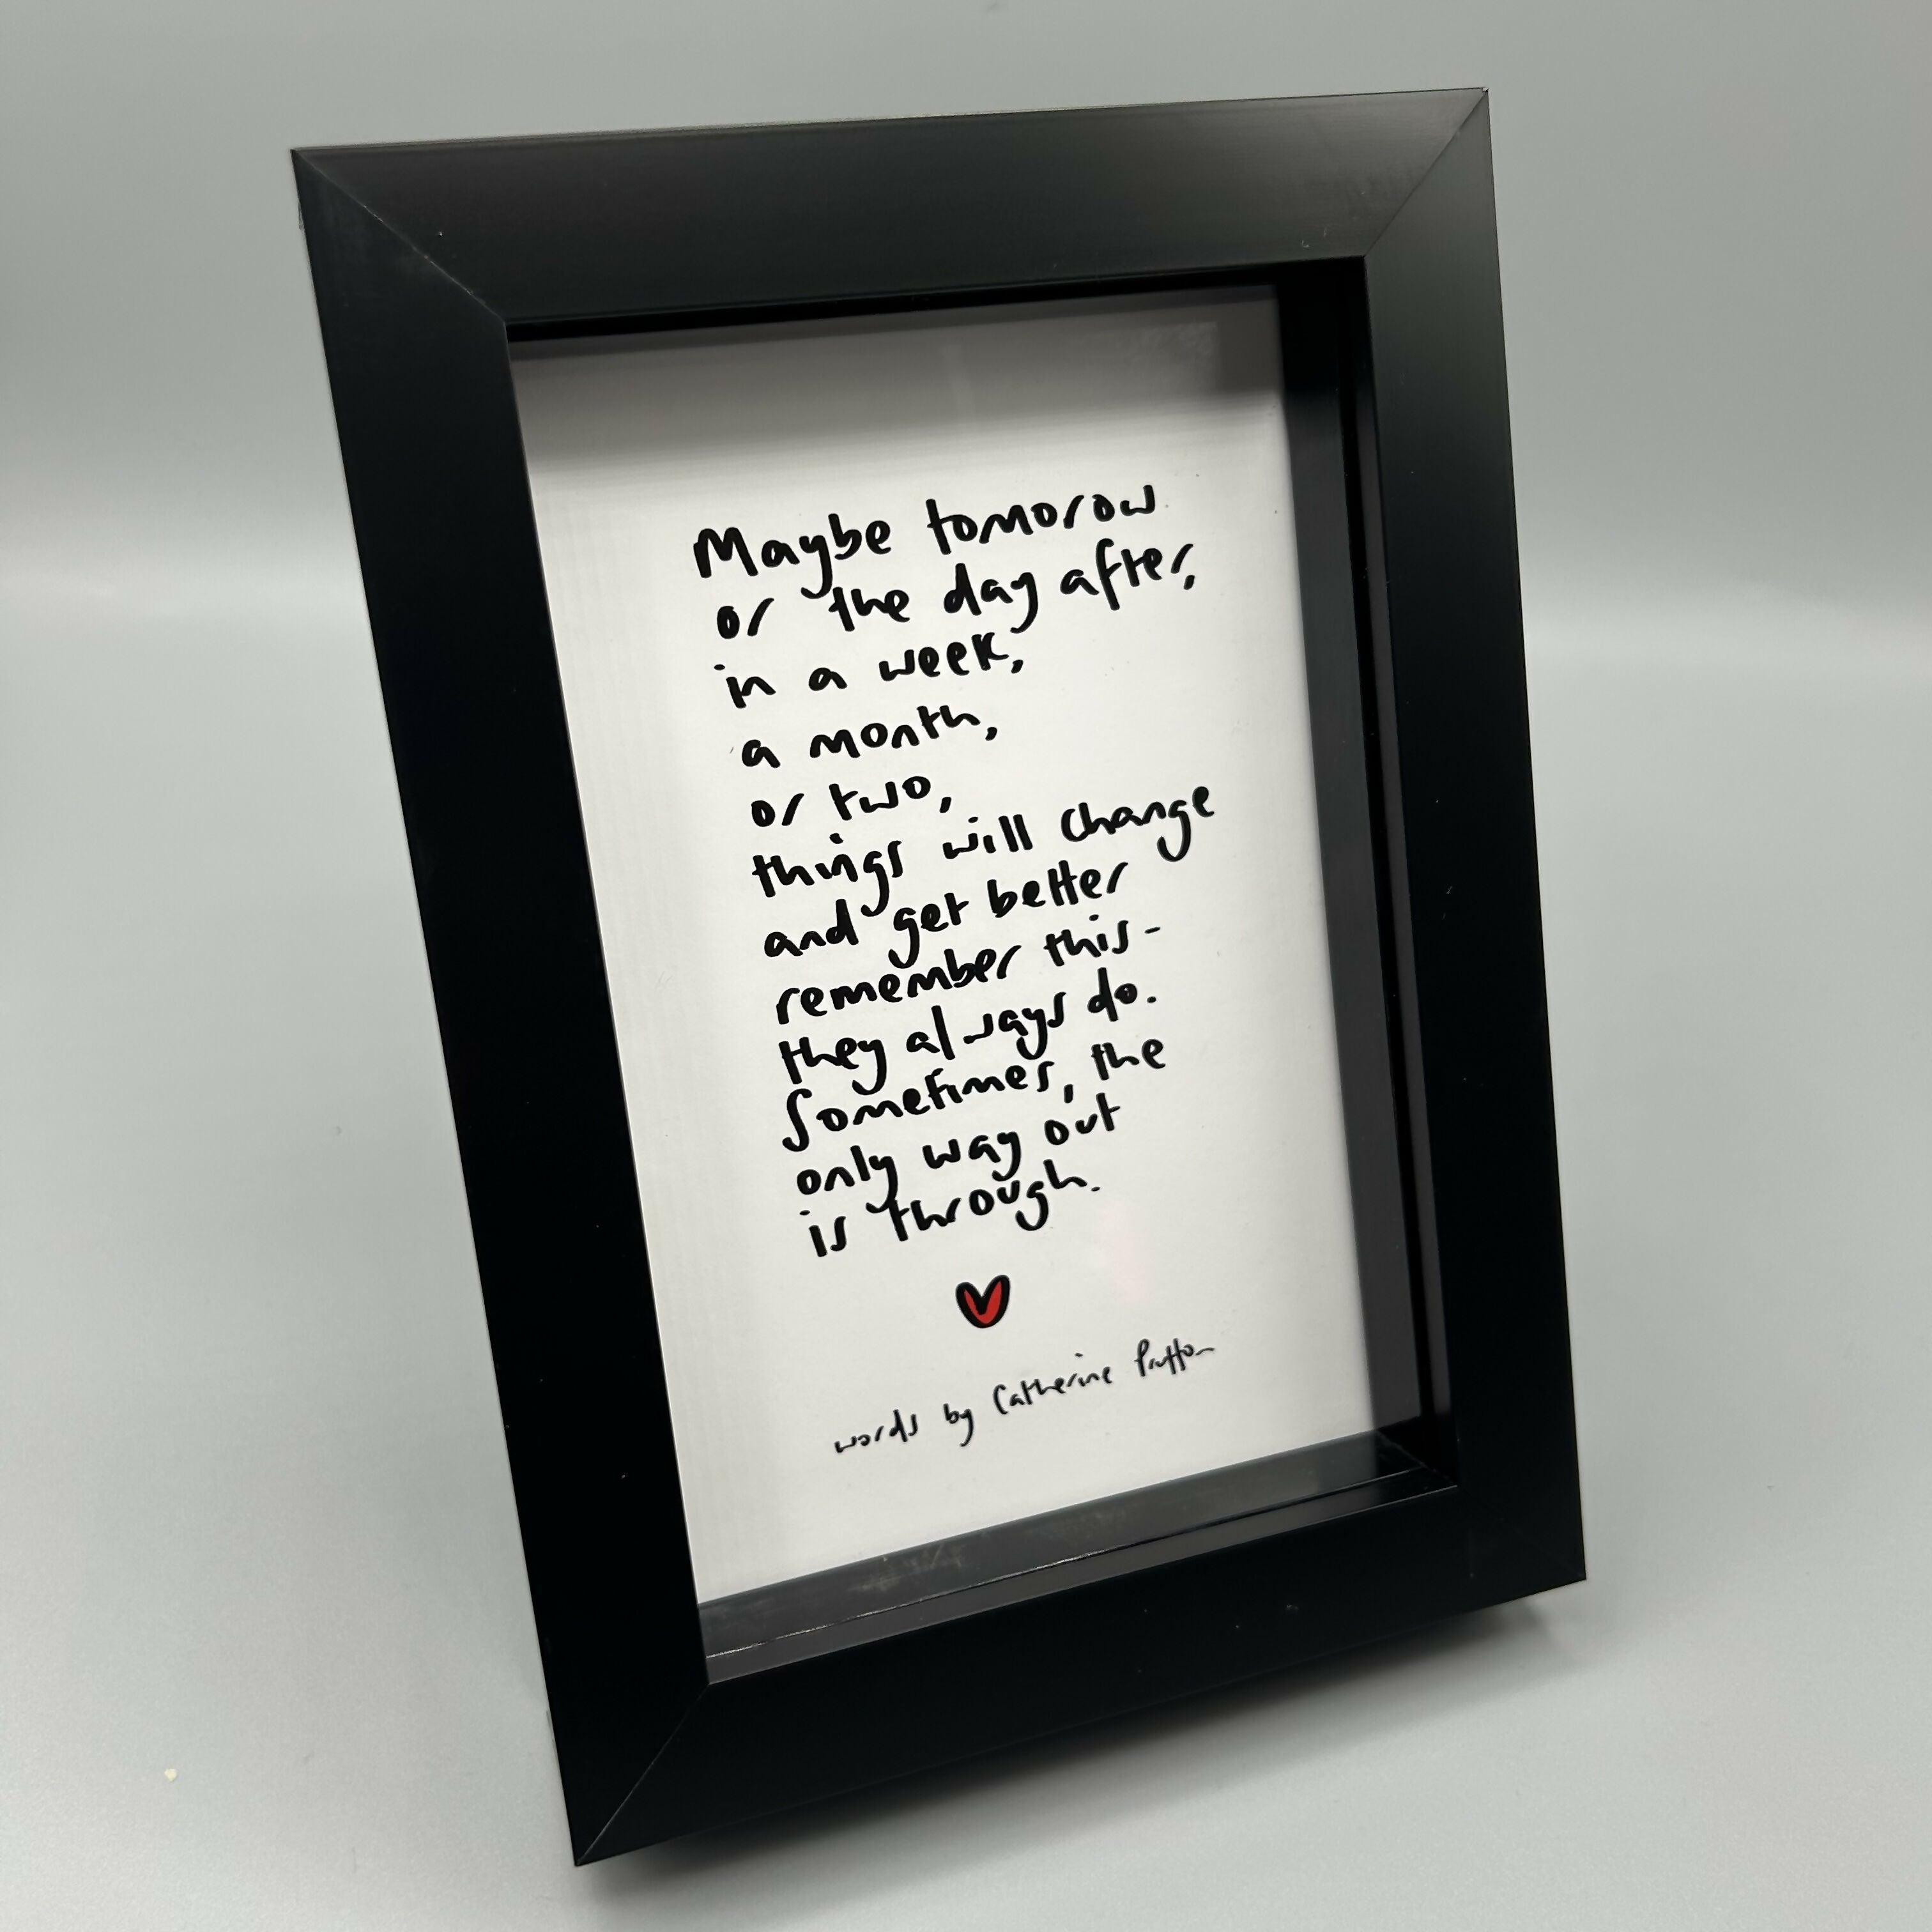 Maybe tomorow
or the day after,
in a week,
a month,
or two,
things will change
and get better
remember this-
they always do.
Sometimes, the
only way out
is through.
words by Catherine Prutton